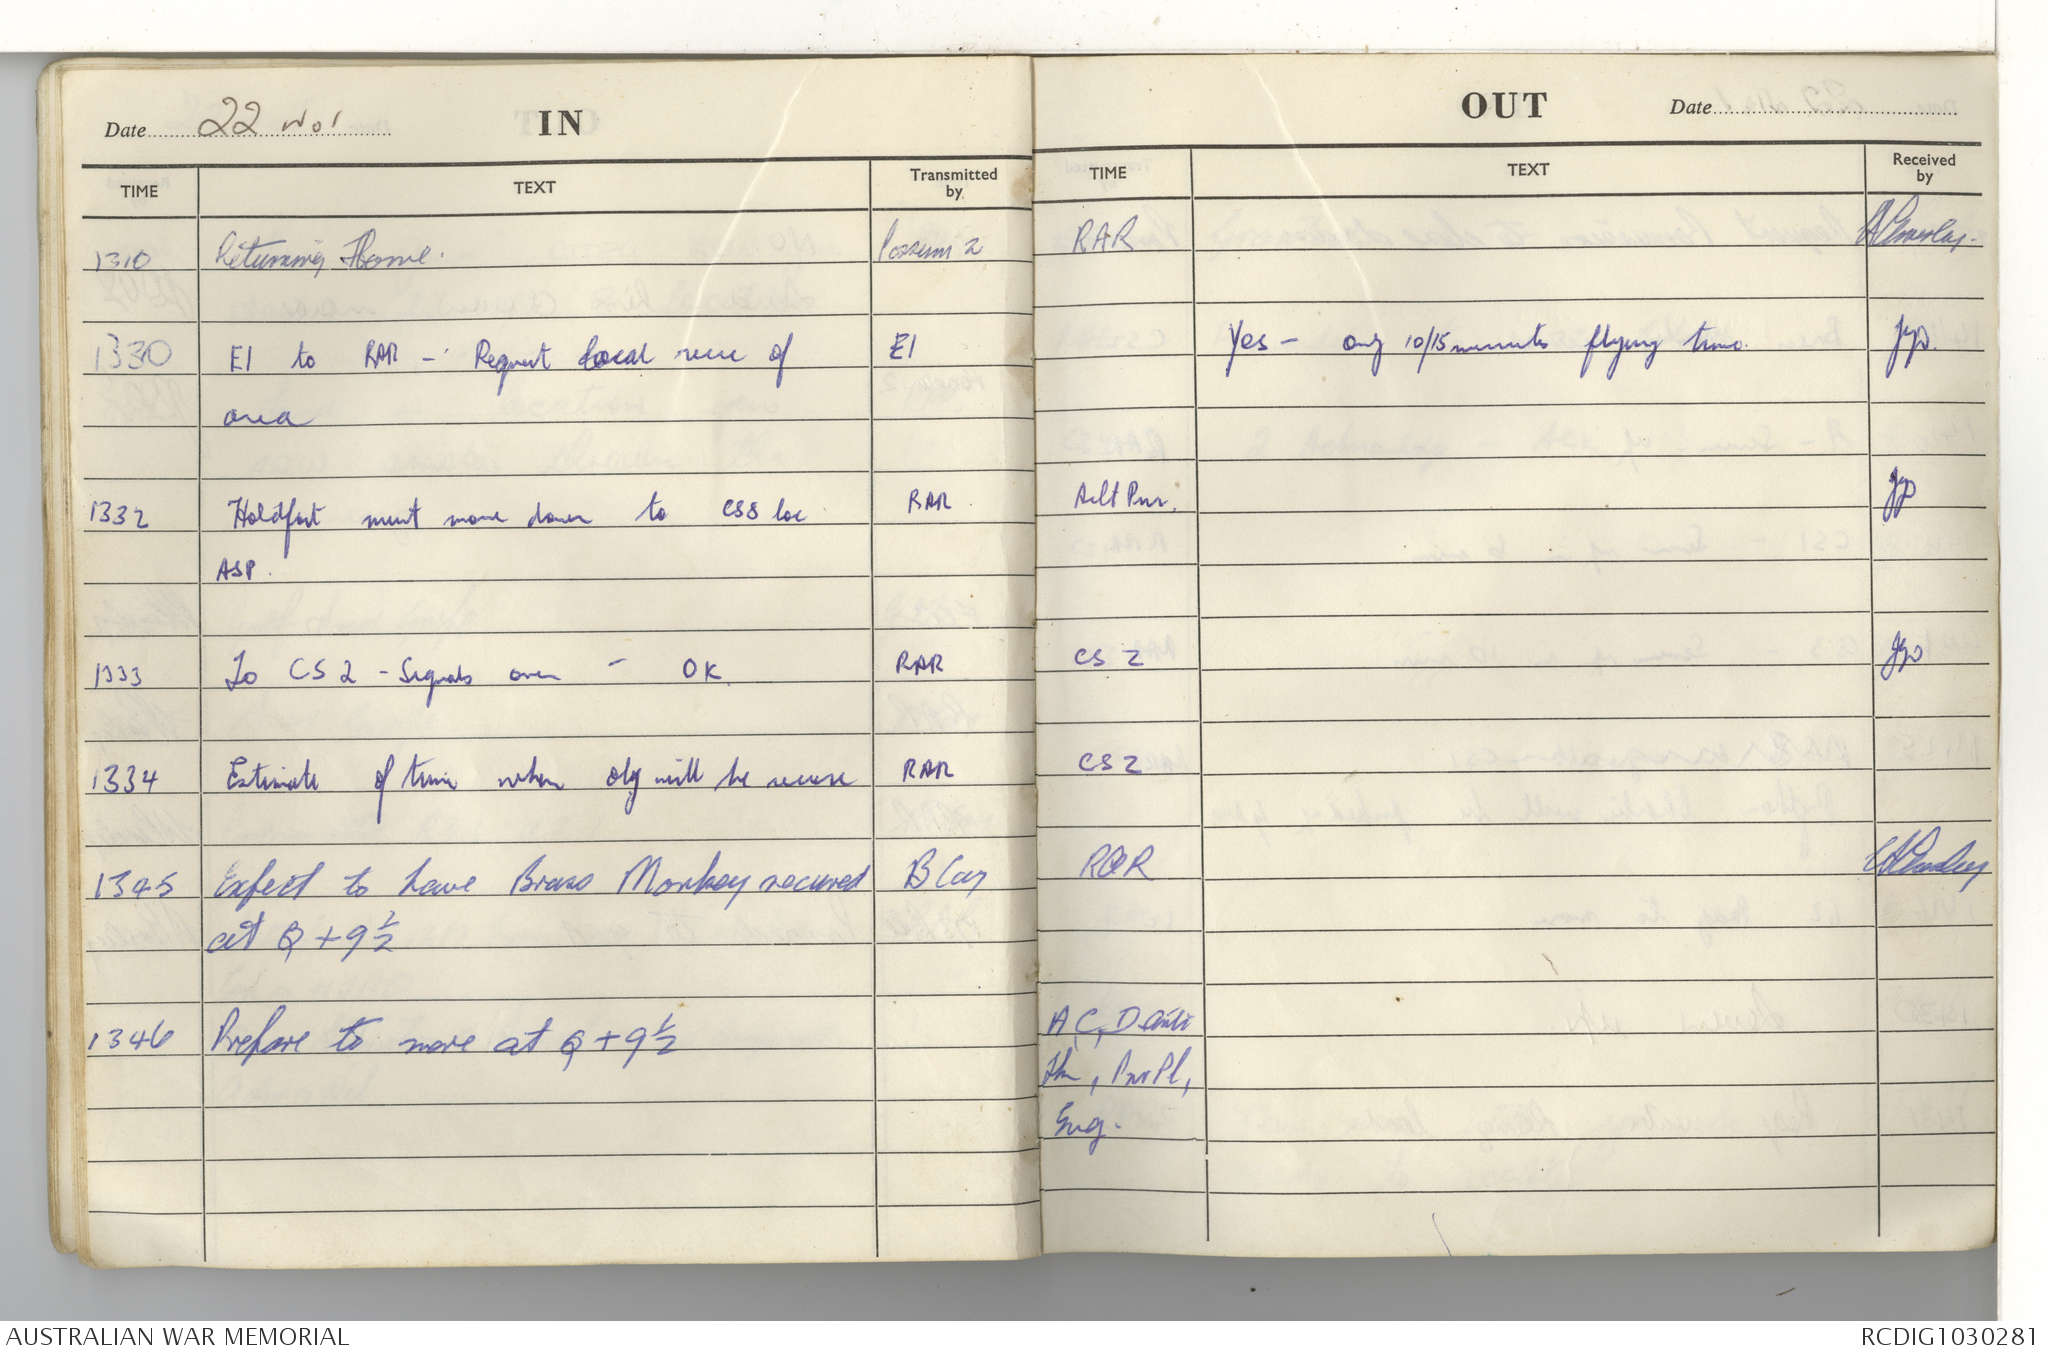 Date 22 Nov IN
TIME TEXT Transmitted by
1310 Returning Home. Possum 2
1330 E1 to RAR - Request local recce of E1
area
1332 Holdfast must move down to CSS loc RAR
ASP.
1333 To CS 2 - Signals over - OK RAR
1334 Estimate of time when obj will be secure RAR
1345 Expect to have Brass Monkey secured B Coy
at Q + 9 1/2
1346 Prepare to move at Q + 9 1/2
OUT Date
TIME TEXT Received by
RAR
Yes - only 10/15 minutes flying time.
Aslt Pnr.
CS 2
CS 2
RAR
A, C, D Anti
Tk, Pnr Pl,
Eng.
AUSTRALIAN WAR MEMORIAL
RCDIG1030281